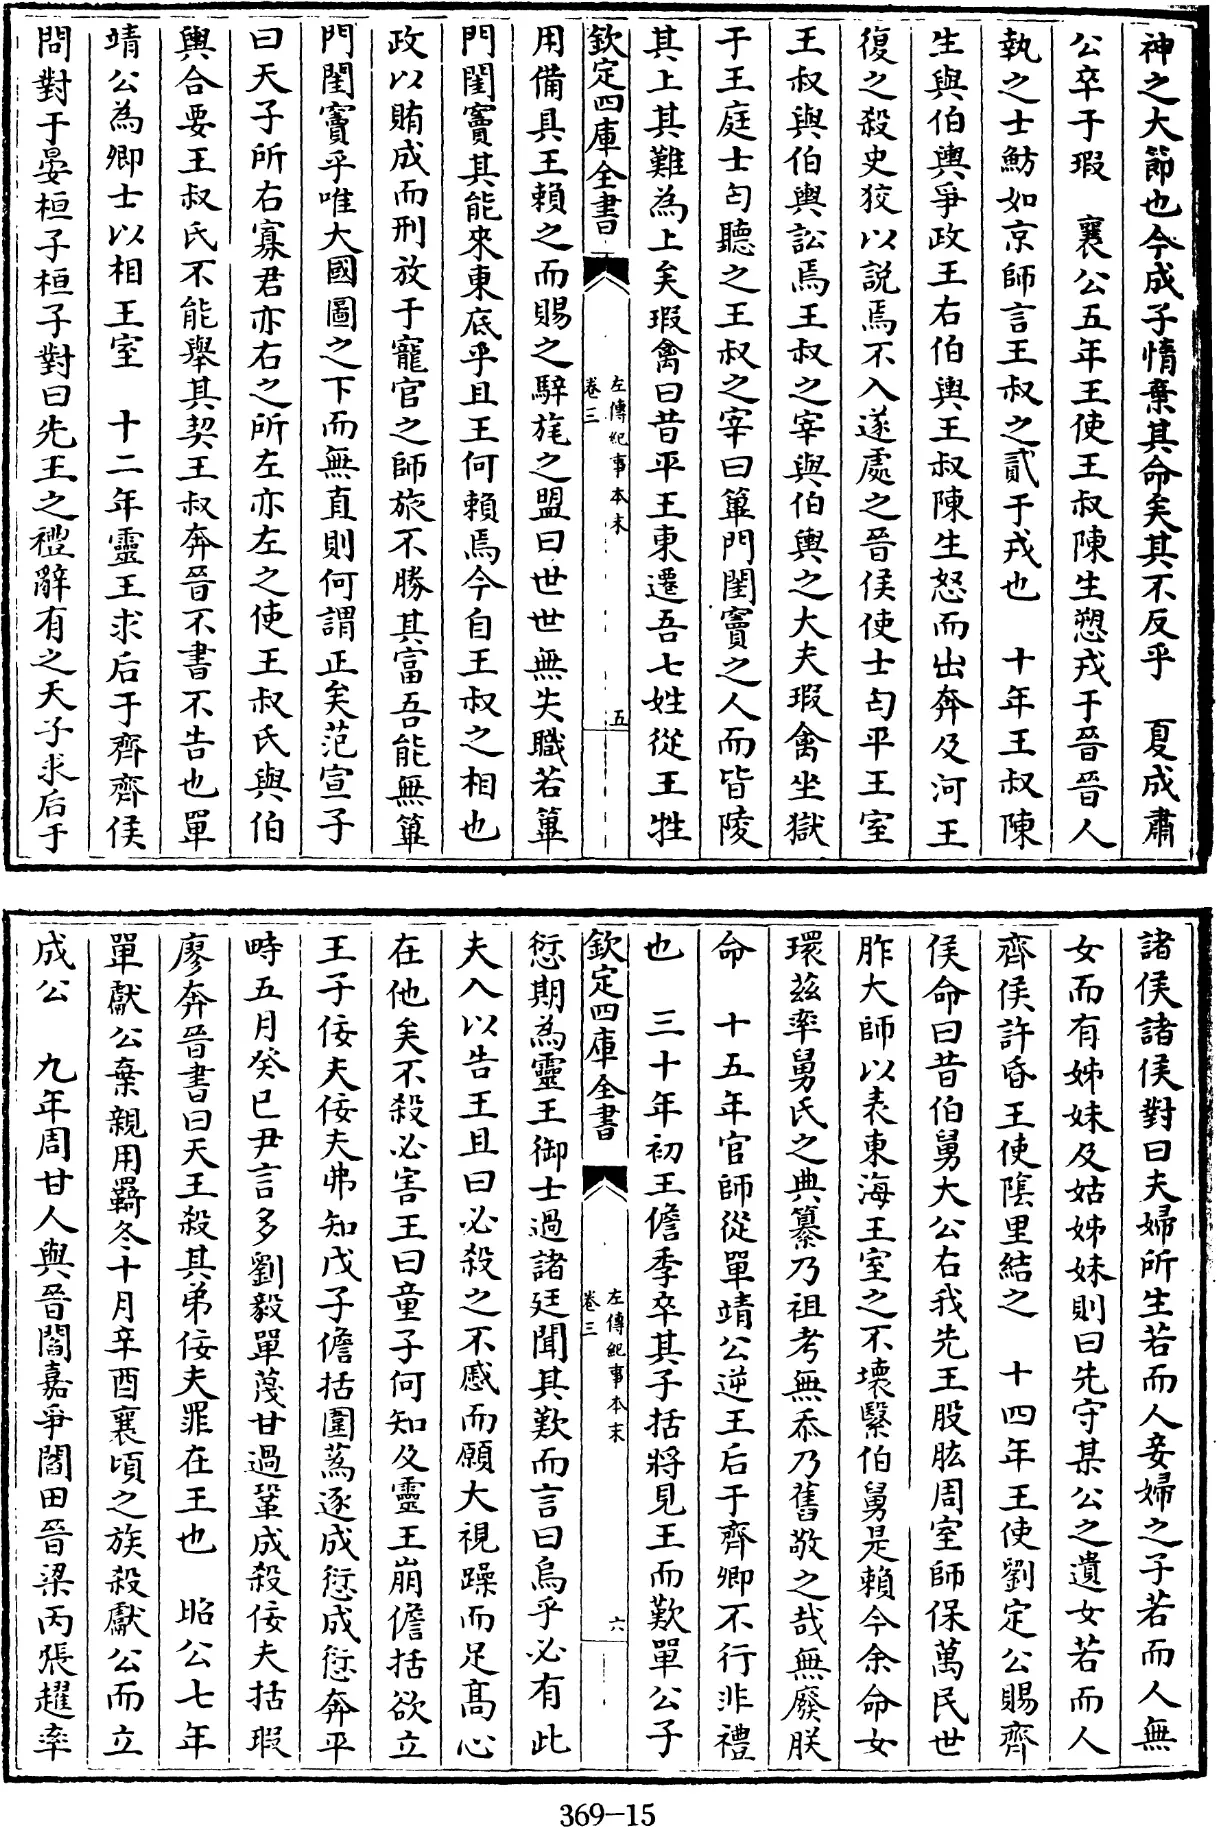 神之大節也今成子惰棄其命矣其不反乎　夏成肅
公卒于瑕　襄公五年王使王叔陳生愬戎于晉晉人
執之士魴如京師言王叔之貳于戎也　十年王叔陳
生與伯輿爭政王右伯輿王叔陳生怒而出奔及河王
復之殺史狡以説焉不入遂處之晉侯使士匄平王室
王叔與伯輿訟焉王叔之宰與伯輿之大夫瑕禽坐獄
于王庭士匄聽之王叔之宰曰篳門閨竇之人而皆陵
其上其難為上矣瑕禽曰昔平王東遷吾七姓從王牲
欽定四庫全書
左傳紀事本末
卷三
五
用備具王賴之而賜之騂旄之盟曰世世無失職若篳
門閨竇其能來東底乎且王何賴焉今自王叔之相也
政以賄成而刑放于寵官之師旅不勝其富吾能無篳
門閨竇乎唯大國圖之下而無直則何謂正矣范宣子
曰天子所右寡君亦右之所左亦左之使王叔氏與伯
輿合要王叔氏不能舉其契王叔奔晉不書不告也單
靖公為卿士以相王室　十二年靈王求后于齊齊侯
問對于晏桓子桓子對曰先王之禮辭有之天子求后于
諸侯諸侯對曰夫婦所生若而人妾婦之子若而人無
女而有姊妹及姑姊妹則曰先守某公之遺女若而人
齊侯許昏王使陰里結之　十四年王使劉定公賜齊
侯命曰昔伯舅大公右我先王股肱周室師保萬民世
胙大師以表東海王室之不壞繄伯舅是賴今余命女
環茲率舅氏之典纂乃祖考無忝乃舊敬之哉無廢朕
命　十五年官師從單靖公逆王后于齊卿不行非禮
也　三十年初王儋季卒其子括將見王而歎單公子
欽定四庫全書
左傳紀事本末
卷三
六
愆期為靈王御士過諸廷聞其歎而言曰烏乎必有此
夫入以告王且曰必殺之不慼而願大視躁而足髙心
在他矣不殺必害王曰童子何知及靈王崩儋括欲立
王子佞夫佞夫弗知戊子儋括圍蔿逐成愆成愆奔平
畤五月癸巳尹言多劉毅單蔑甘過鞏成殺佞夫括瑕
廖奔晉書曰天王殺其弟佞夫罪在王也　昭公七年
單獻公棄親用羇冬十月辛酉襄頃之族殺獻公而立
成公　九年周甘人與晉閻嘉爭閻田晉梁丙張趯率
369-15